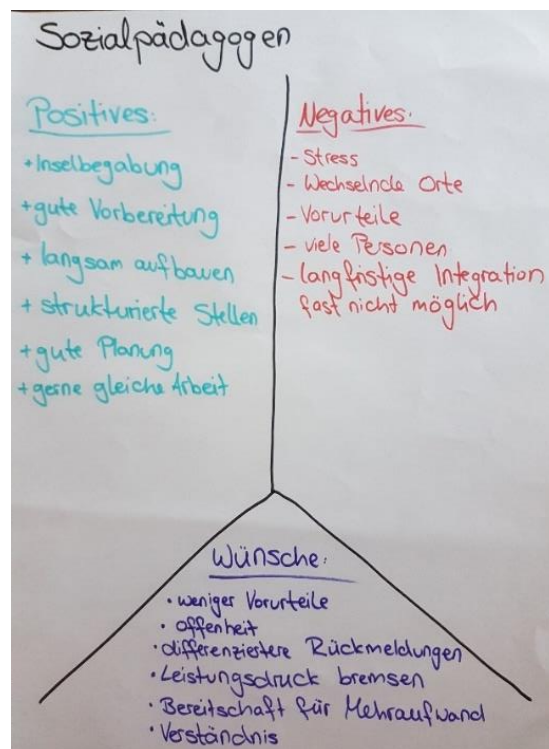 Sozialpädagogen
Positives:
+ Inselbegabung
+ gute Vorbereitung
+ langsam aufbauen
+ strukturierte Stellen
+ gute Planung
+ gerne gleiche Arbeit
Negatives:
- Stress
- Wechselnde Orte
- Vorurteile
- viele Personen
- langfristige Integration
fast nicht möglich
Wünsche:
• weniger Vorurteile
• offenheit
• differenziertere Rückmeldungen
• Leistungsdruck bremsen
• Bereitschaft für Mehraufwand
• Verständnis